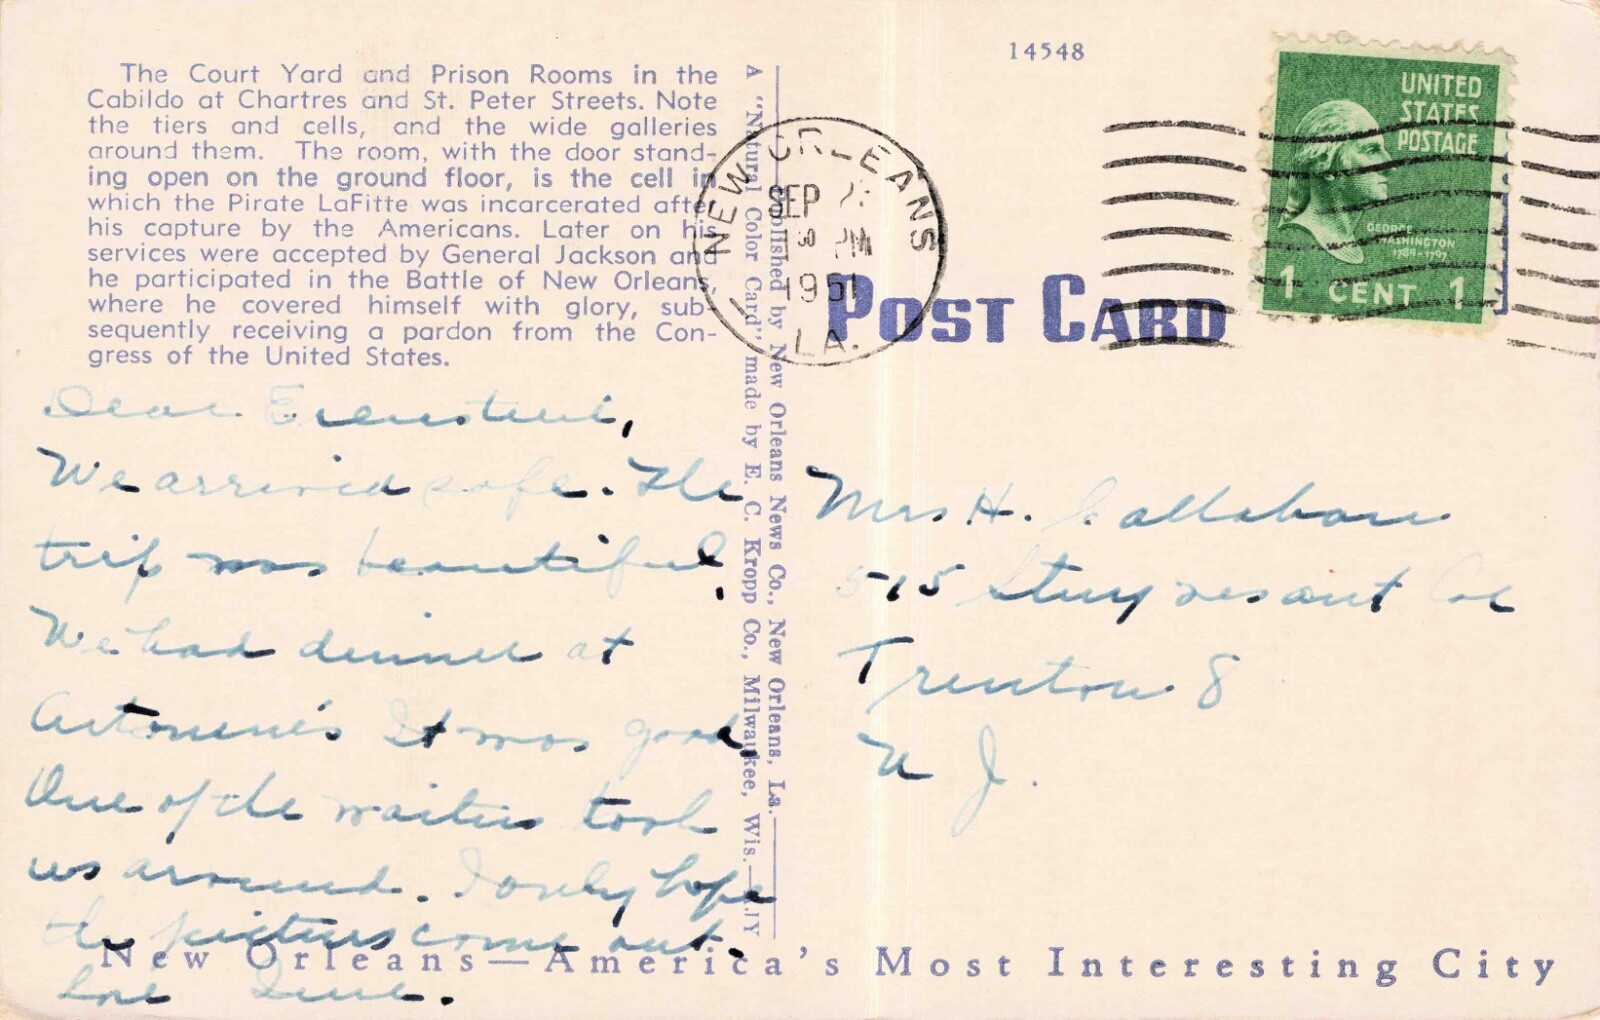 14548
The Court Yard and Prison Rooms in the
Cabildo at Chartres and St. Peter Streets. Note
the tiers and cells, and the wide galleries
around them. The room, with the door stand-
ing open on the ground floor, is the cell in
which the Pirate LaFitte was incarcerated after
his capture by the Americans. Later on his
services were accepted by General Jackson and
he participated in the Battle of New Orleans,
where he covered himself with glory, sub-
sequently receiving a pardon from the Con-
gress of the United States.
A "Natural Color Card", made by E. C. Kropp Co., Milwaukee, Wis.
Published by New Orleans News Co., New Orleans, La.
NEW ORLEANS
SEP
1 30 PM
1951
LA.
POST CARD
UNITED
STATES
POSTAGE
GEORGE
WASHINGTON
1789-1797
1 CENT 1
Dear
We arrived safe. The
trip was beautiful,
We had dinner at
Antonine's It was good,
One of the waiters took
us around. I only hope
the pictures come out.
Love
Mrs H. Callahan
515 Stuyvesant Ave
Trenton 8
N J.
New Orleans—America's Most Interesting City